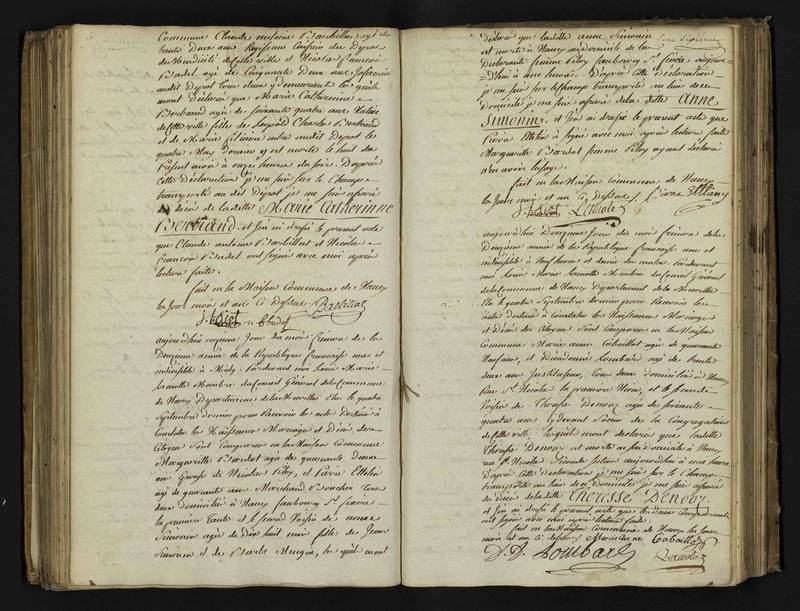 Commune Claude antoine Barbillat agé de
trente Deux ans Regisseur caissier du Depot
de Mendicité de cette ville et Nicolas francois
Badel agé de Cinquante Deux ans
audit Depot tous deux y demeurant les quels
mont Déclaré que Marie Catherinne
Bertrand agée de soixante quatre ans Native
de cette ville fille de Leopold Charles Bertrand
et de Marie entrée audit Depot le
quatre May Dernier y est morte le huit du
present mois à onze heures du soir. D'après
cette Déclaration je me suis sur le Champ
transporté au dit Depot je me suis assuré
du décès de ladite Marie Catherinne
Bertrand et j'en ai dressé le présent acte
que Claude antoine Barbillat et Nicolas
francois Badel ont signé avec moi après
lecture faite.
fait en la Maison Commune de Nancy
les Jour mois et an ci dessus Barbillat
aujourdhui onzieme Jour du mois frimaire de la
Deuzieme année de la République francaise une et
indivisible à Midy. Pardevant moi Louis Marie
Membre du Conseil Général de la Commune
de Nancy Département de la Meurthe Elu le quatre
Septembre dernier pour Recevoir les actes Destinés à
Constater les Naissances Mariages et Décès des
Citoyens sont Comparus en la Maison Commune
Marguerite Bardot agée de quarante deux
ans Epouse de Nicolas Piloy, et Pierre
agé de quarante ans Marchand Boucher tous
deux domiciliés à Nancy faubourg St
la premiere tante et le second Voisin de anne
Simonin agée de Dix huit mois fille de Jean
Simonin et de Barbe Mengin, les quels mont
déclaré que ladite anne Simonin
est morte à Nancy au domicile de la
Déclarante femme Piloy faubourg St
D'hui à une heure. D'après cette déclaration
je me suis sur le champ transporté au lieu de ce
domicile je me suis assuré de la ditte Anne
Simonin, et j'en ai dressé le présent acte que
Pierre a signé avec moi après lecture faite
Marguerite Bardot femme Piloy ayant déclaré
n'en avoir l'usage.
fait en la Maison commune de Nancy
les Jour mois et an ci dessus. Pierre
aujourdhui Douzieme Jour du mois frimaire de la
Deuzieme année de la République francaise une et
indivisible à Neuf heures et demie du matin Pardevant
moi Louis Marie Membre du Conseil Général
de la Commune de Nancy Département de la Meurthe
Elu le quatre Septembre dernier pour Recevoir les
actes destinés à Constater les Naissances Mariages
et Décès des Citoyens Sont Comparus en la Maison
Commune Marie anne Cabaillot agée de quarante
ans, et Dieudonné Lombard agé de trente
deux ans Instituteur, tous deux domiciliés à Nancy
Rue St Nicolas la premiere Niece, et le second
Voisin de Therese Denooz agée de soixante
quatre ans Cydevant Soeur de la Congregation
de cette ville lesquels mont déclaré que ladite
Therese Denooz est morte en son Domicile à Nancy
rue St Nicolas seconde section aujourdhui à une heure
D'après cette Déclaration je me suis sur le Champ
transporté au lieu de ce Domicile je me suis assuré
du Décès de ladite Theresse Denooz
et j'en ai dressé le présent acte que les deux Comparants
ont signé avec moi après lecture faite
fait en la Maison Commune de Nancy les Jour
mois et an ci dessus Marie anne Cabaillot
D. D. Lombard